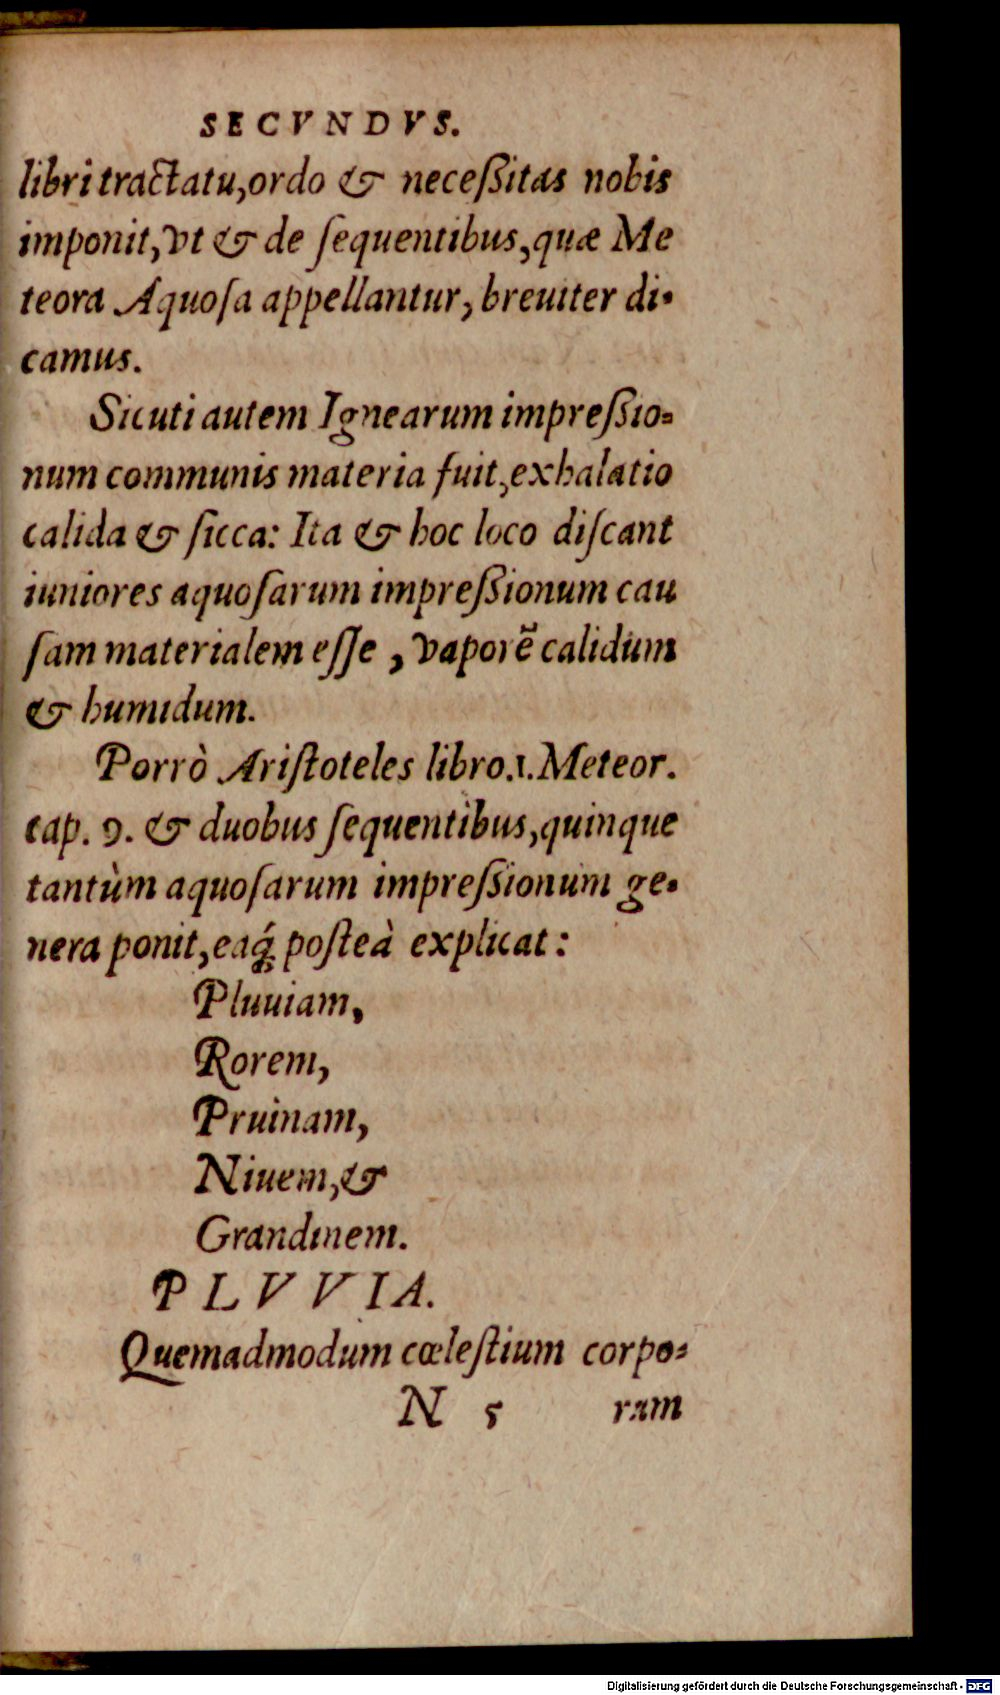 SECVNDVS.
libri tractatu, ordo & neceßitas nobis
imponit, vt & de ſequentibus, quæ Me
teora Aquoſa appellantur, breuiter di-
camus.
Sicuti autem Ignearum impreßio-
num communis materia fuit, exhalatio
calida & ſicca: Ita & hoc loco diſcant
iuniores aquoſarum impreßionum cau
ſam materialem eſſe, vaporẽ calidum
& humidum.
Porrò Ariſtoteles libro.1.Meteor.
cap. 9. & duobus ſequentibus, quinque
tantùm aquoſarum impreßionum ge-
nera ponit, eaq́; poſteà explicat:
Pluuiam,
Rorem,
Pruinam,
Niuem, &
Grandinem.
PLVVIA.
Quemadmodum cœleſtium corpo-
N 5 rum
Digitalisierung gefördert durch die Deutsche Forschungsgemeinschaft - DFG